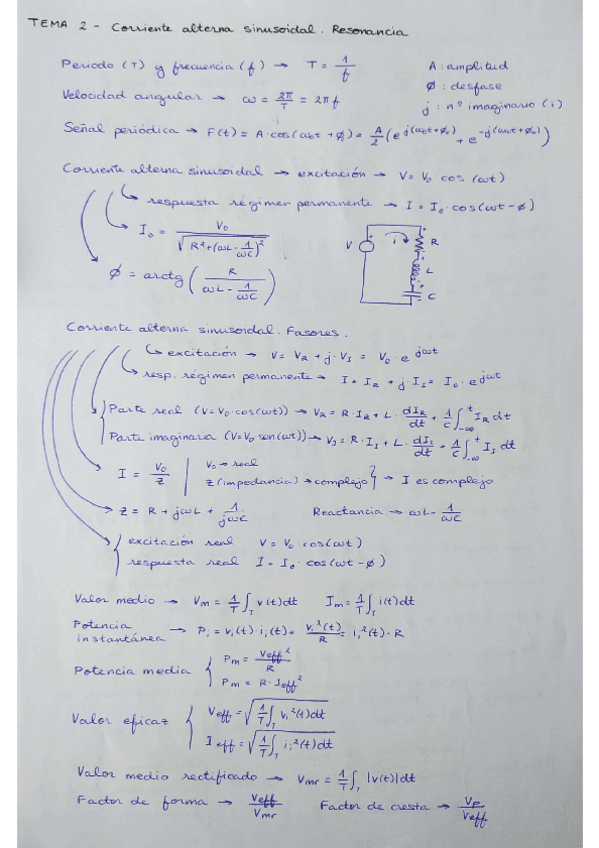 TEMA 2 - Corriente alterna sinusoidal. Resonancia
Periodo (T) y frecuencia (f) → T = 1/f
A: amplitud
Ø: desfase
j: nº imaginario (i)
Velocidad angular → ω = 2π/T = 2πf
Señal periódica → F(t) = A·cos(ω₀t + φ₀) = A/2 (e^j(ω₀t+φ₀) + e^-j(ω₀t+φ₀))
Corriente alterna sinusoidal → excitación → V = V₀·cos(ωt)
→ respuesta régimen permanente → I = I₀·cos(ωt-Ø)
→ I₀ = V₀ / √(R²+(ωL-1/ωC)²)
Ø = arctg (R / (ωL - 1/ωC))
V + i R L C
Corriente alterna sinusoidal. Fasores.
→ excitación → V = V_R + j·V_I = V₀·e^jωt
→ resp. régimen permanente → I = I_R + j·I_I = I₀·e^jωt
Parte real (V=V₀·cos(ωt)) → V_R = R·I_R + L·dI_R/dt + 1/C ∫_-∞^t I_R dt
Parte imaginaria (V=V₀ sen(ωt)) → V_I = R·I_I + L·dI_I/dt + 1/C ∫_-∞^t I_I dt
I = V₀/Z | V₀ → real
Z (impedancia) → complejo } → I es complejo
Z = R + jωL + 1/jωC Reactancia → ωL - 1/ωC
excitación real V = V₀·cos(ωt)
respuesta real I = I₀·cos(ωt-Ø)
Valor medio → V_m = 1/T ∫_T v(t)dt I_m = 1/T ∫_T i(t)dt
Potencia
instantánea → P_i = v_i(t)·i_i(t) = v_i²(t)/R = i_i²(t)·R
Potencia media { P_m = V_eff²/R
P_m = R·I_eff²
Valor eficaz { V_eff = √(1/T ∫_T v_i²(t)dt)
I_eff = √(1/T ∫_T i_i²(t)dt)
Valor medio rectificado → V_mr = 1/T ∫_T |v(t)|dt
Factor de forma → V_eff/V_mr Factor de cresta → V_p/V_eff